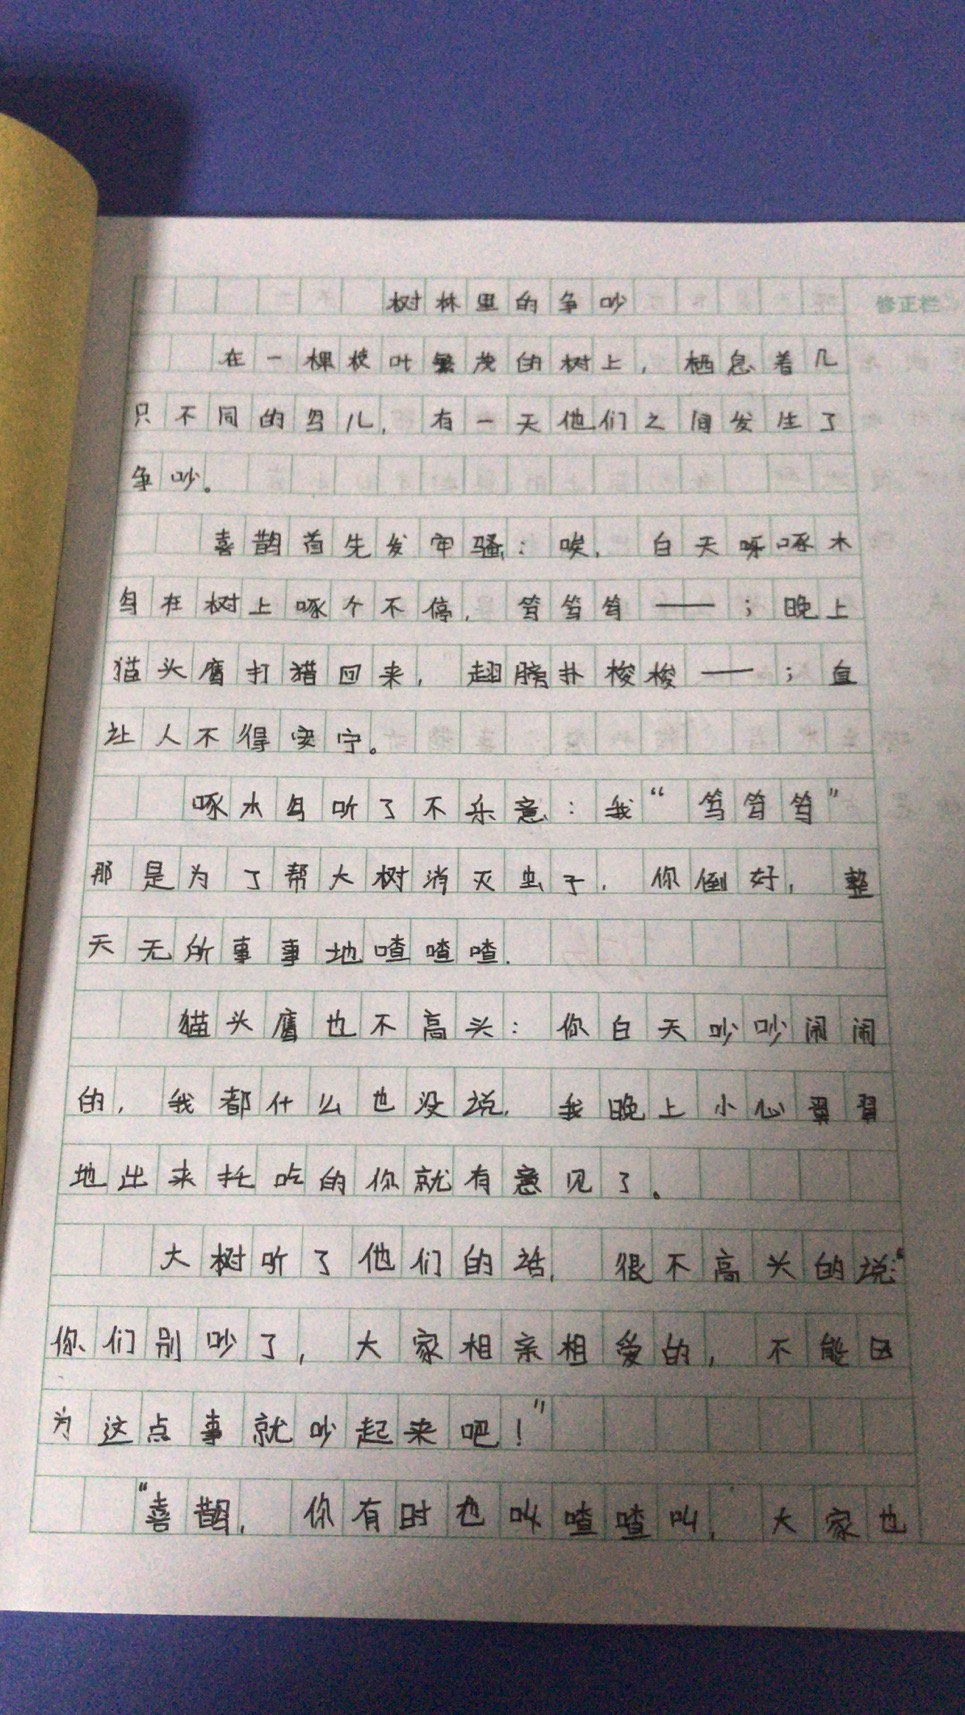 树林里的争吵
修正栏
在一棵枝叶繁茂的树上，栖息着几
只不同的鸟儿，有一天他们之间发生了
争吵。
喜鹊首先发牢骚：唉，白天呀啄木
鸟在树上啄个不停，笃笃笃——；晚上
猫头鹰打猎回来，翅膀扑梭梭——；直
让人不得安宁。
啄木鸟听了不乐意：我“笃笃笃”
那是为了帮大树消灭虫子，你倒好，整
天无所事事地喳喳喳.
猫头鹰也不高头：你白天吵吵闹闹
的，我都什么也没说，我晚上小心翼翼
地出来托吃的你就有意见了。
大树听了他们的话，很不高头的说：“
你们别吵了，大家相亲相爱的，不能因
为这点事就吵起来吧！”
“喜鹊，你有时也叫喳喳叫，大家也